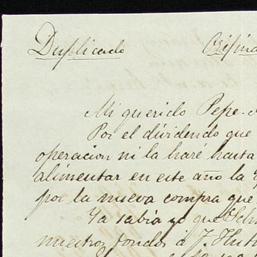 Duplicado
Mi querido Pepe.
Por el dividendo que
operacion ni la haré hasta
alimentar en este año la
por la nueva compra que
Ya sabia yo que
nuestros fondos á J.